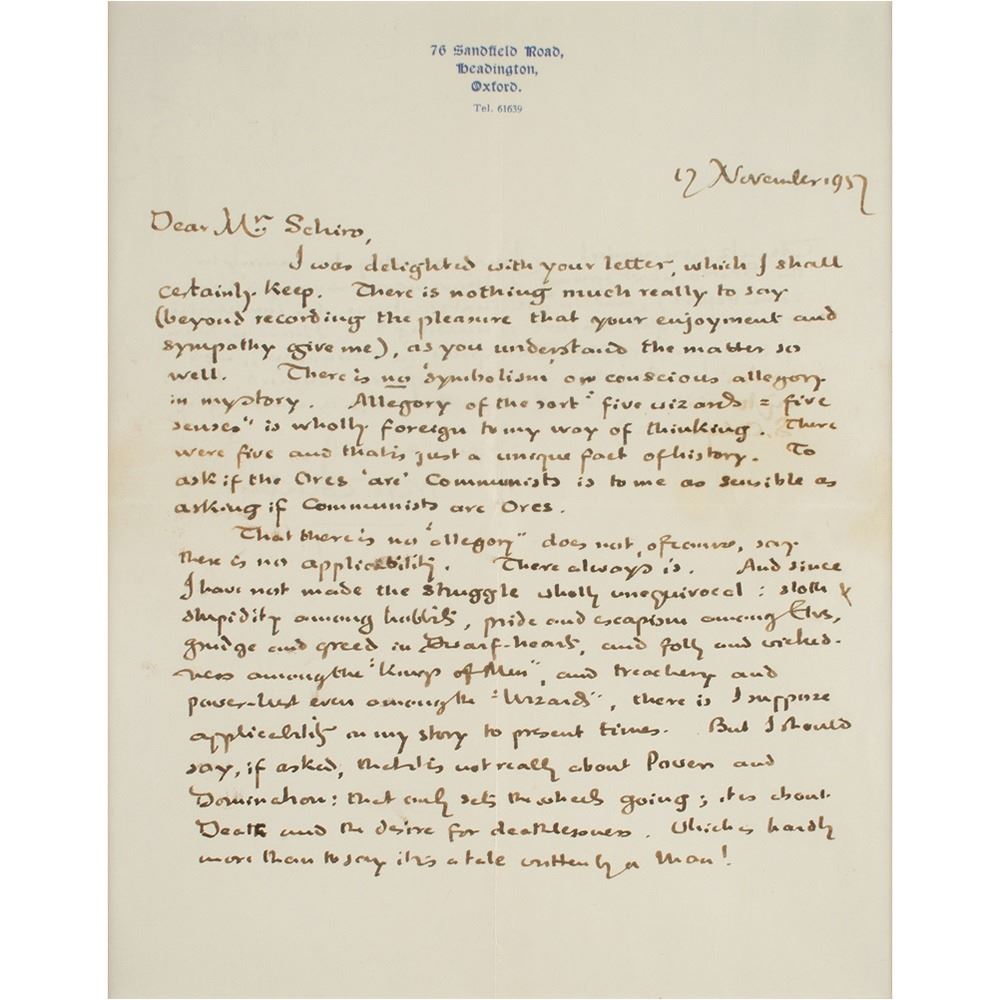 76 Sandfield Road,
Headington,
Oxford.
Tel. 61639
17 November 1957
Dear Mr. Schiro,
I was delighted with your letter, which I shall
certainly keep. There is nothing much really to say
(beyond recording the pleasure that your enjoyment and
sympathy give me), as you understand the matter so
well. There is no 'symbolism' or conscious allegory
in my story. Allegory of the sort "five wizards = five
senses" is wholly foreign to my way of thinking. There
were five and that is just a unique fact of history. To
ask if the Orcs 'are' Communists is to me as sensible as
asking if Communists are Orcs.
That there is no 'allegory" does not, of course, say
there is no applicability. There always is. And since
I have not made the struggle wholly unequivocal : sloth &
stupidity among hobbits, pride and escapism among Elves,
grudge and greed in Dwarf-hearts, and folly and wicked-
ness among the "Kings of Men", and treachery and
power-lust even among the "Wizards", there is I suppose
applicability in my story to present times. But I should
say, if asked, that it is not really about Power and
Domination: that only sets the wheels going; it is about
Death and the desire for deathlessness. Which is hardly
more than to say it is a tale written by a Man!